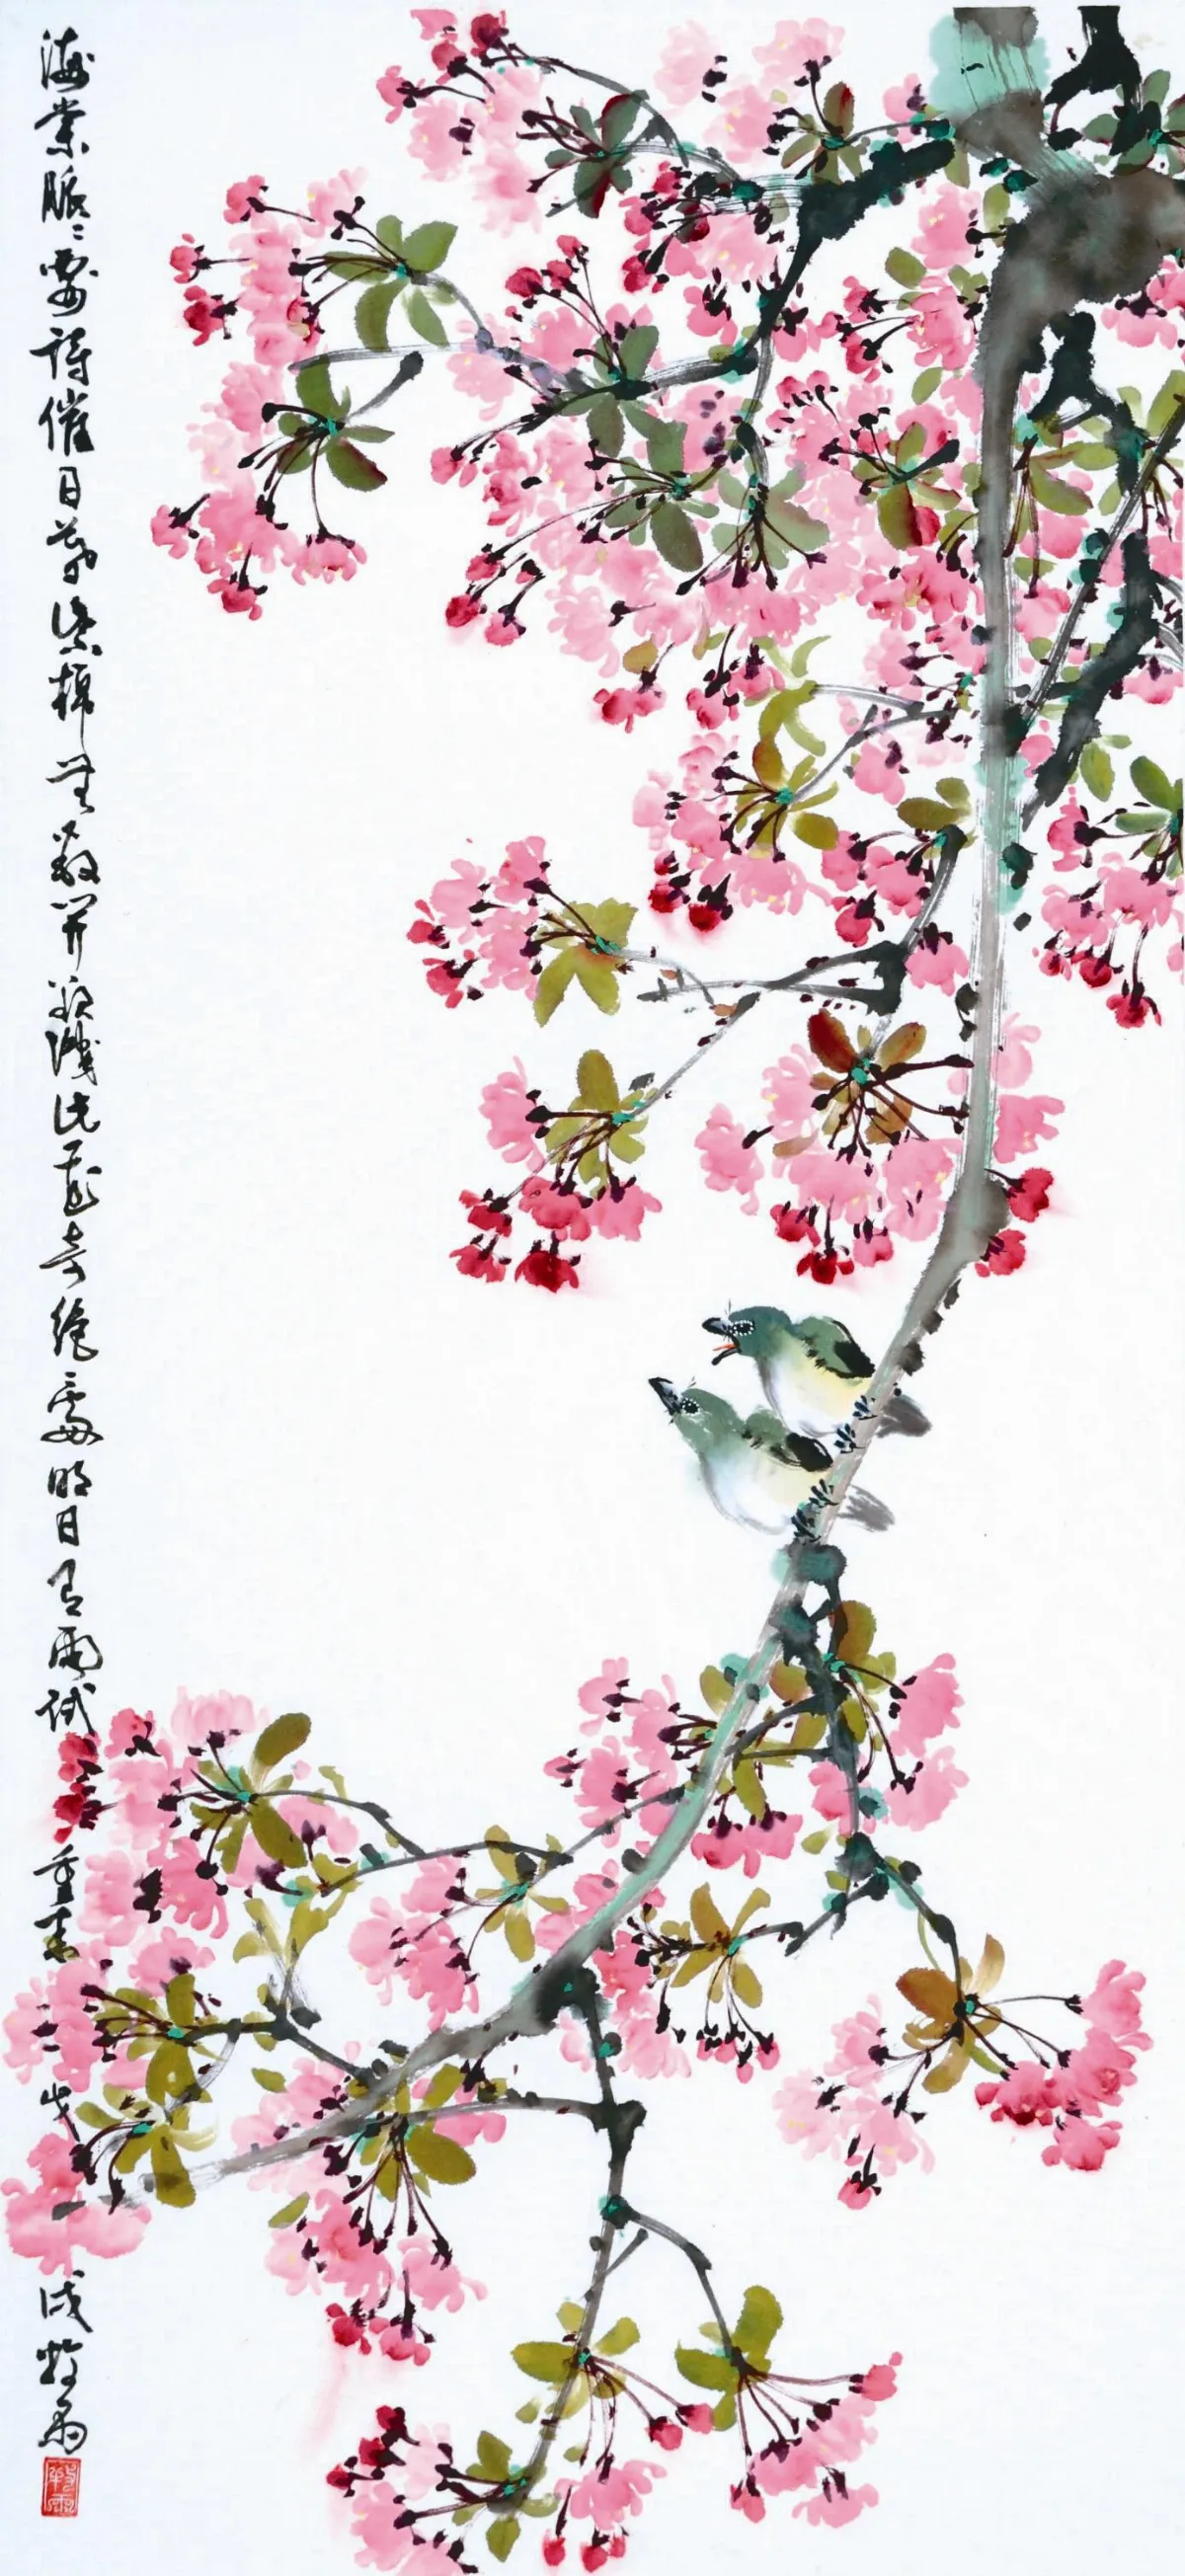 海棠脈〻要詩催日暮紫棉無數開欲識此花奇絕處明日有雨試重來戊戌